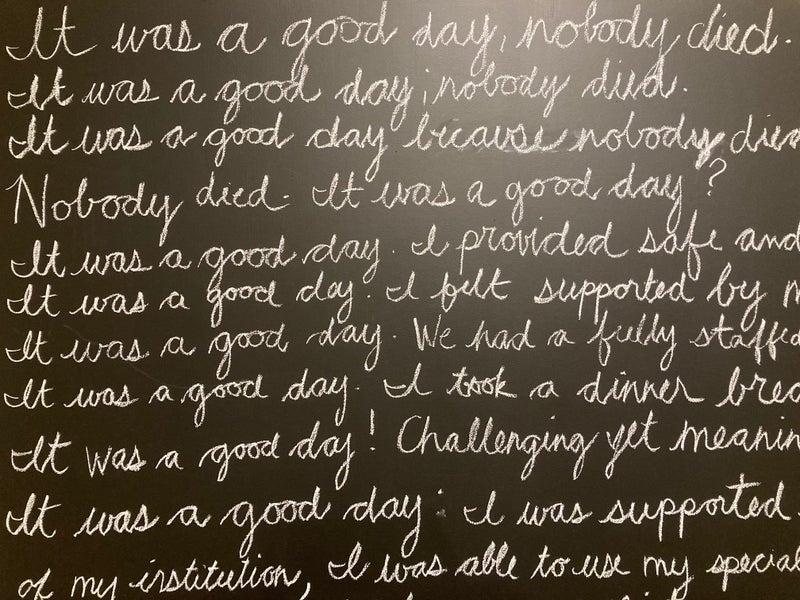 It was a good day, nobody died.
It was a good day; nobody died.
It was a good day because nobody died
Nobody died. It was a good day?
It was a good day. I provided safe and
It was a good day. I felt supported by
It was a good day. We had a fully staffed
It was a good day. I took a dinner
It was a good day! Challenging yet
It was a good day: I was supported
of my institution, I was able to use my